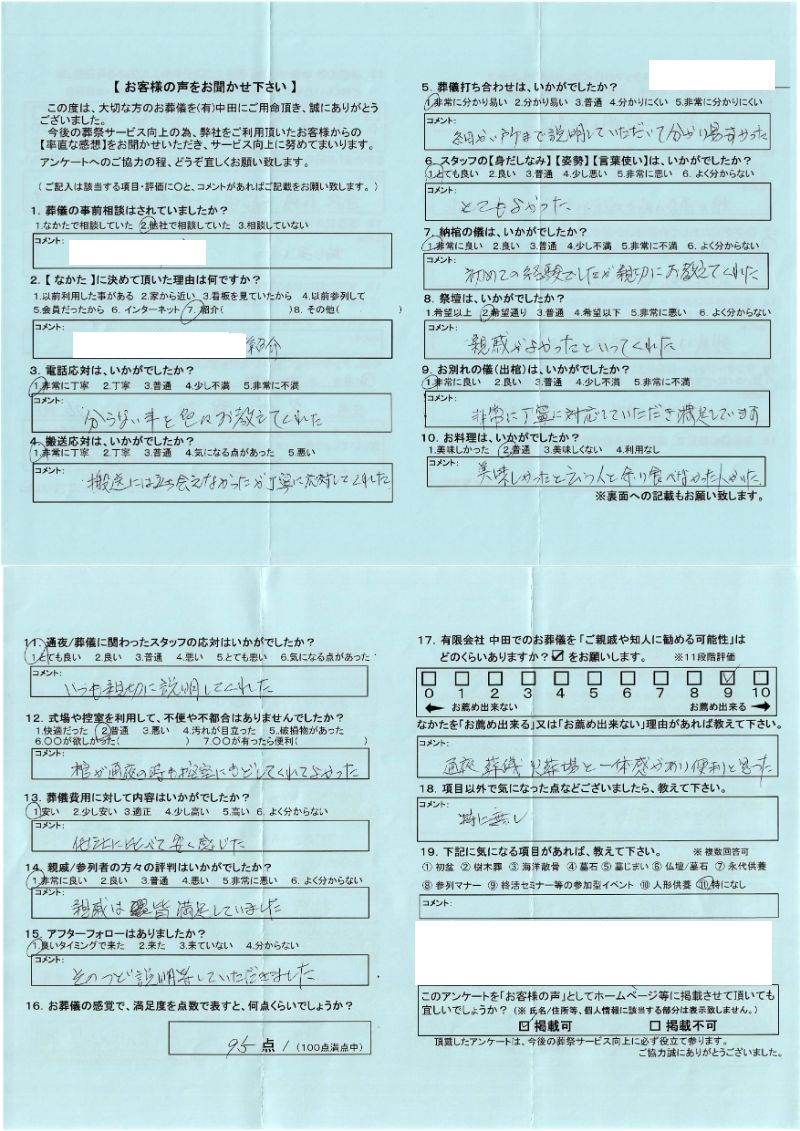 【 お客様の声をお聞かせ下さい 】
この度は、大切な方のお葬儀を(有)中田にご用命頂き、誠にありがとう
ございました。
今後の葬祭サービス向上の為、弊社をご利用頂いたお客様からの
【率直な感想】をお聞かせいただき、サービス向上に努めてまいります。
アンケートへのご協力の程、どうぞ宜しくお願い致します。
（ご記入は該当する項目・評価に○と、コメントがあればご記載をお願い致します。）
1. 葬儀の事前相談はされていましたか？
1.なかたで相談していた 2.他社で相談していた 3.相談していない
コメント:
2.【 なかた 】に決めて頂いた理由は何ですか？
1.以前利用した事がある 2.家から近い 3.看板を見ていたから 4.以前参列して
5.会員だったから 6. インターネット 7.紹介( )8. その他( )
コメント:
紹介
3. 電話応対は、いかがでしたか？
1.非常に丁寧 2.丁寧 3.普通 4.少し不満 5.非常に不満
コメント:
分らない事を色々お教えてくれた
4. 搬送応対は、いかがでしたか？
1.非常に丁寧 2.丁寧 3.普通 4.気になる点があった 5.悪い
コメント:
搬送には立ち会えなかったが丁寧に応対してくれました
5. 葬儀打ち合わせは、いかがでしたか？
1.非常に分かり易い 2.分かり易い 3.普通 4.分かりにくい 5.非常に分かりにくい
コメント:
細かい所まで説明していただいて分かり易すかった
6. スタッフの【身だしなみ】【姿勢】【言葉使い】は、いかがでしたか？
1.とても良い 2.良い 3.普通 4.少し悪い 5.非常に悪い 6. よく分からない
コメント:
とてもよかった
7. 納棺の儀は、いかがでしたか？
1.非常に良い 2.良い 3.普通 4.少し不満 5.非常に不満 6. よく分からない
コメント:
初めての経験でしたが親切にお教えてくれた
8. 祭壇は、いかがでしたか？
1.希望以上 2.希望通り 3.普通 4.希望以下 5.非常に悪い 6. よく分からない
コメント:
親戚がよかったといってくれた
9. お別れの儀(出棺)は、いかがでしたか？
1.非常に良い 2.良い 3.普通 4.少し不満 5.非常に不満
コメント:
非常に丁寧に対応していただき満足しています
10. お料理は、いかがでしたか？
1.美味しかった 2.普通 3.美味しくない 4.利用なし
コメント:
美味しかったと言う人と余り食べなかった人がいた
※裏面への記載もお願い致します。
11. 通夜/葬儀に関わったスタッフの応対はいかがでしたか？
1.とても良い 2.良い 3.普通 4.悪い 5.とても悪い 6.気になる点があった
コメント:
いつも親切に説明してくれた
12. 式場や控室を利用して、不便や不都合はありませんでしたか？
1.快適だった 2.普通 3.悪い 4.汚れが目立った 5.破損物があった
6.〇〇が欲しかった( ) 7.〇〇が有ったら便利( )
コメント:
棺が通夜の時も控室にもどしてくれてよかった
13. 葬儀費用に対して内容はいかがでしたか？
1.安い 2.少し安い 3.適正 4.少し高い 5.高い 6. よく分からない
コメント:
他社に比べて安く感じた
14. 親戚/参列者の方々の評判はいかがでしたか？
1.非常に良い 2.良い 3.普通 4.悪い 5.非常に悪い 6. よく分からない
コメント:
親戚は皆満足していました
15. アフターフォローはありましたか？
1.良いタイミングで来た 2.来た 3.来ていない 4.分からない
コメント:
そのつど説明等していただきました
16. お葬儀の感覚で、満足度を点数で表すと、何点くらいでしょうか？
95 点 / (100点満点中)
17. 有限会社 中田でのお葬儀を「ご親戚や知人に勧める可能性」は
どのくらいありますか？☑をお願いします。 ※11段階評価
☐ ☐ ☐ ☐ ☐ ☐ ☐ ☐ ☐ ☑ ☐
0 1 2 3 4 5 6 7 8 9 10
← お薦め出来ない お薦め出来る →
なかたを「お薦め出来る」又は「お薦め出来ない」理由があれば教えて下さい。
コメント:
通夜 葬儀 火葬場と一体感があり便利と思った
18. 項目以外で気になった点などございましたら、教えて下さい。
コメント:
特に無し
19. 下記に気になる項目があれば、教えて下さい。 ※ 複数回答可
① 初盆 ② 樹木葬 ③ 海洋散骨 ④ 墓石 ⑤ 墓じまい ⑥ 仏壇/墓石 ⑦ 永代供養
⑧ 参列マナー ⑨ 終活セミナー等の参加型イベント ⑩ 人形供養 ⑪ 特になし
コメント:
このアンケートを「お客様の声」としてホームページ等に掲載させて頂いても
宜しいでしょうか？ (※ 氏名/住所等、個人情報に該当する部分は表示致しません。)
☑ 掲載可 ☐ 掲載不可
頂戴したアンケートは、今後の葬祭サービス向上に必ず役立て参ります。
ご協力誠にありがとうございました。